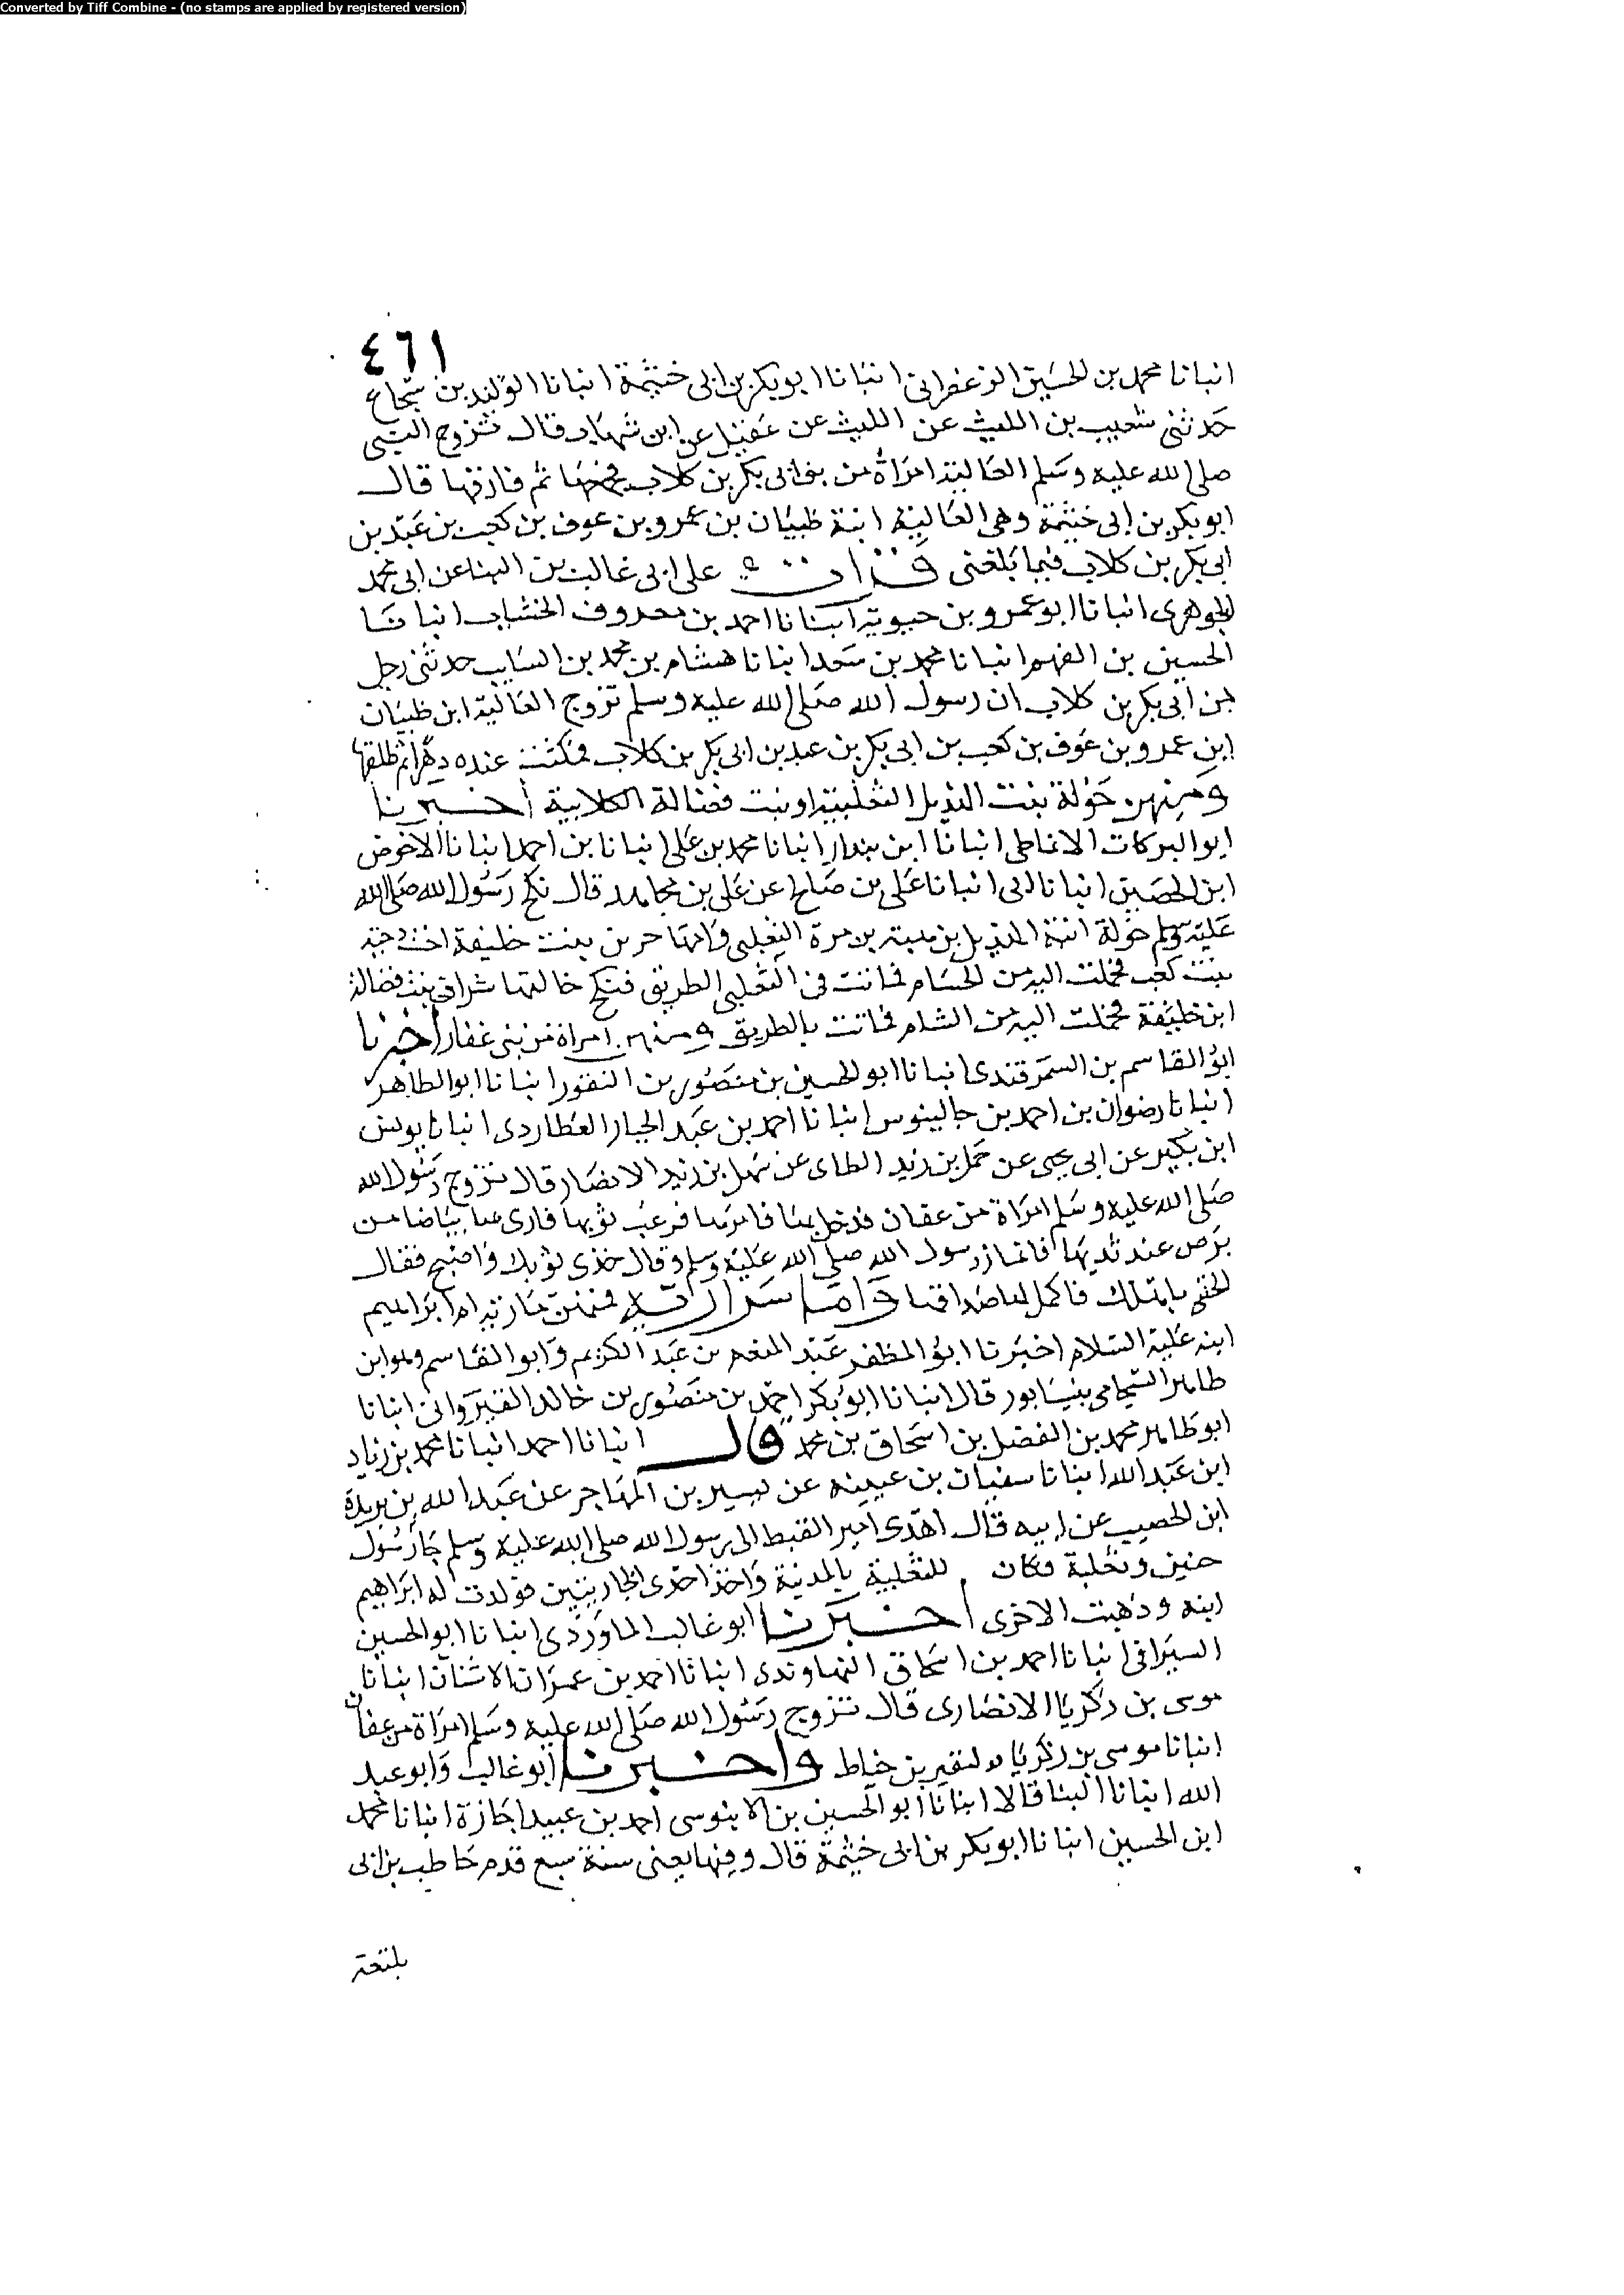 Converted by Tiff Combine - (no stamps are applied by registered version)
٤٦١
انبانا محمد بن الحسين الزعفرانى انبانا ابو بكر بن ابى خيثمة انبانا الوليد بن شجاع
حدثنى شعيب بن الليث عن الليث عن عقيل عن ابن شهاب قال تزوج النبى
صلى الله عليه وسلم العالية امراة من بنى ابى بكر بن كلاب ثم فارقها قال
ابو بكر بن ابى خيثمة وهى العالية ابنة ظبيان بن عمرو بن عوف بن كعب بن عبد بن
ابى بكر بن كلاب فيما بلغنى قرات على ابى غالب بن البنا عن ابى محمد
الجوهرى انبانا ابو عمرو بن حيوية انبانا احمد بن معروف الخشاب انبانا
الحسين بن الفهم انبانا محمد بن سعد انبانا هشام بن محمد بن السايب حدثنى رجل
من ابى بكر بن كلاب ان رسول الله صلى الله عليه وسلم تزوج العالية ابن ظبيان
ابن عمرو بن عوف بن كعب بن ابى بكر بن عبد بن ابى بكر بن كلاب فمكثت عنده دهرا ثم طلقها
ومنهن خولة بنت الهذيل الثعلبية او بنت فضالة الكلابية أخبرنا
ابو البركات الانماطى انبانا ابن بندار انبانا محمد بن على انبانا بن احمد انبانا الاخوص
ابن الحصين انبانا ابى انبانا على بن صالح عن على بن مجاهد قال نكح رسول الله صلى الله
عليه وسلم خولة ابنة الهذيل بن هبيرة بن مرة الثعلبى وامها خرنق بنت خليفة اخت دحية
بنت كعب فحملت اليه من الحشام فماتت فى الثعلبى الطريق فنكح خالتها شراف بنت فضالة
ابن خليفة فحملت اليه من الشام فماتت بالطريق ومنهن امراة من بنى غفار أخبرنا
ابو القاسم بن السمرقندى انبانا ابو الحسين بن منصور بن النقور انبانا ابو الطاهر
انبانا رضوان بن احمد بن جالينوس انبانا احمد بن عبد الجبار العطاردى انبانا يونس
ابن بكير عن ابى يحيى عن حمل بن زيد الطاى عن سهل بن زيد الانصار قال تزوج رسول الله
صلى الله عليه وسلم امراة من غفان فدخل بها فامرها فرعب ثوبها فارى بها بياضا من
برص عند ثديها فانماز رسول الله صلى الله عليه وسلم وقال خذى ثوبك واصبح فقال
الحقى باهلك فاكمل لها صداقها واما سراريه فمنهن مارية ام ابراهيم
ابنه عليه السلام اخبرنا ابو المظفر عبد المنعم بن عبد الكريم وابو القاسم وهو ابن
طاهر الشحامى بنيسابور قال انبانا ابو بكر احمد بن منصور بن خالد القيروانى انبانا
ابو طاهر محمد بن الفضل بن اسحاق بن محمد قال انبانا احمد انبانا محمد بن زياد
ابن عبد الله انبانا سفيان بن عيينه عن بسير بن المهاجر عن عبد الله بن بريدة
ابن الحصيب عن ابيه قال اهدى امير القبط الى رسول الله صلى الله عليه وسلم جا رسول
حنين وبغلة فكان للبغلية بالمدنية واخذ احدى الجاريتين فولدت له ابراهيم
ابنه وذهبت الاخرى أخبرنا ابو غالب الماوردى انبانا ابو الحسين
السيرافى انبانا احمد بن اسحاق النهاوندى انبانا احمد بن عمران الاشنان انبانا
موسى بن زكريا الانصارى قال تزوج رسول الله صلى الله عليه وسلم امراة من غفان
انبانا موسى بن زكريا بن خياط وأخبرنا ابو غالب وابو عبد
الله انبانا البنا قالا انبانا ابو الحسين بن الابنوسى احمد بن عبيد اجازة انبانا محمد
ابن الحسين انبانا ابو بكر بن ابى خيثمة قال وفيها يعنى سنة سبع قدم حاطب بن ابى
بلتعة